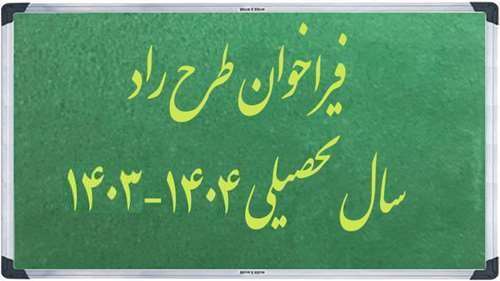 فراخوان طرح راد
سال تحصیلی ۱۴۰۴-۱۴۰۳